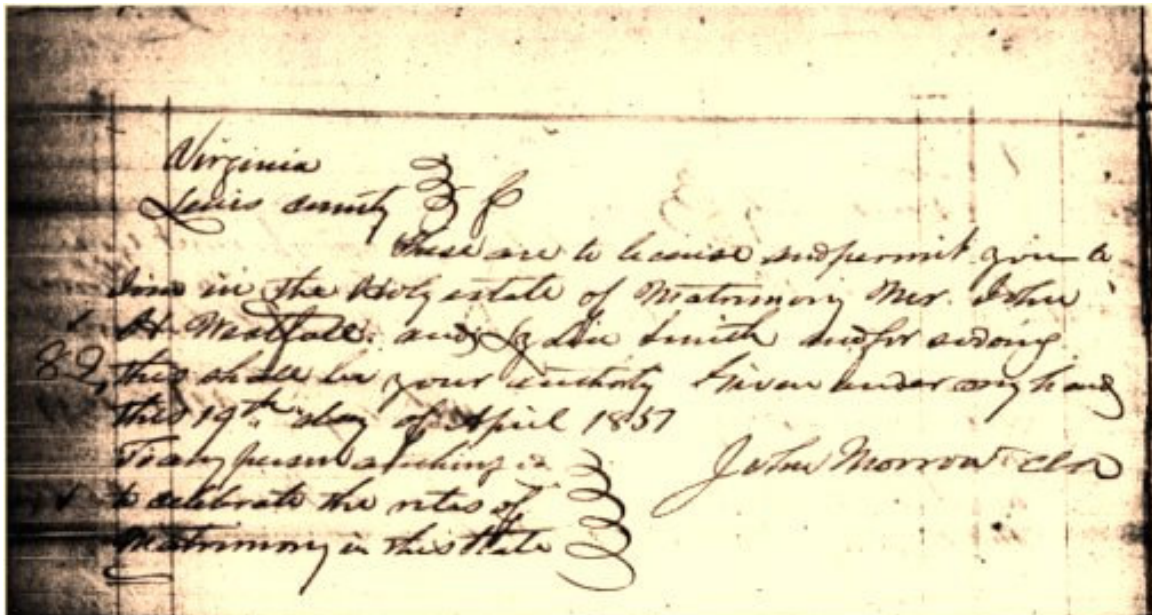 Virginia
Lewis County
These are to licence and permit you to
Join in the Holy estate of Matrimony Mr. John
H. Westfall. and Smith and for so doing
82, this shall be your authority Given under my hand
this 19th day of April 1857
To any person authorized John Morrow Clk
to celebrate the rites of
Matrimony in this State